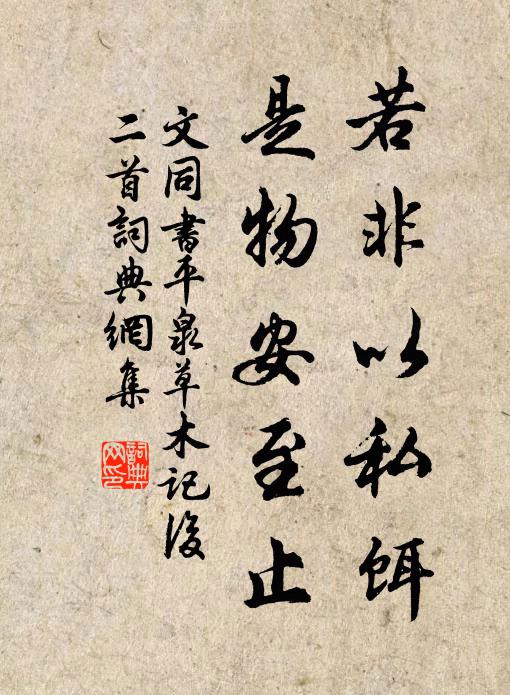 若非以私餌
是物安至止
文同書平泉草木記後
二首詞典網集
詞典
网印